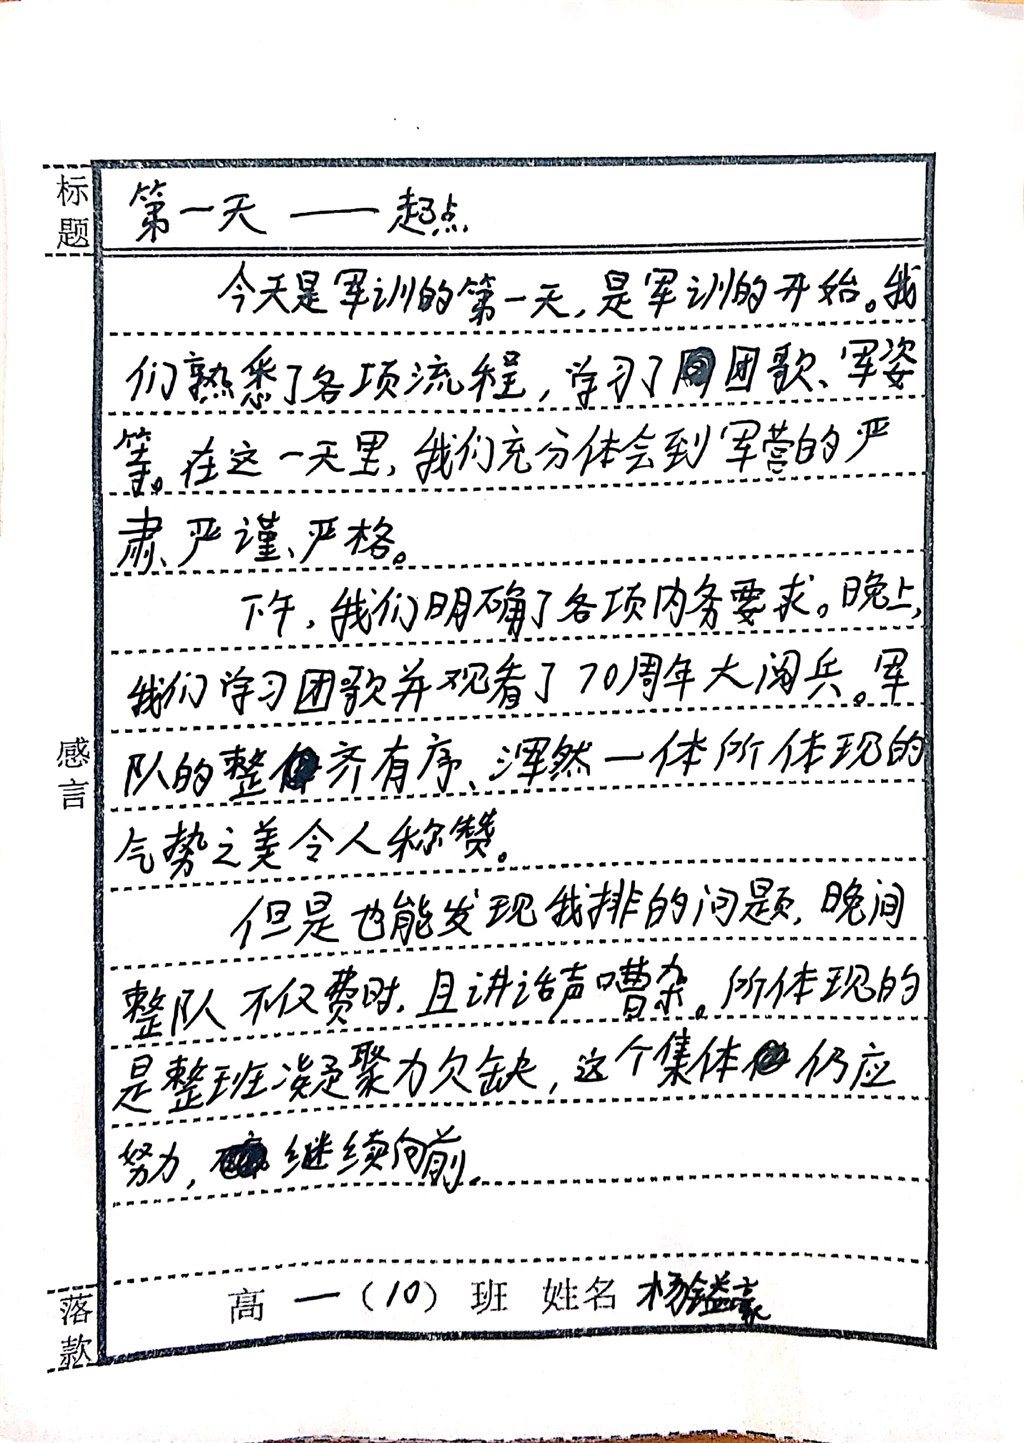 标题
第一天 —— 起点
今天是军训的第一天,是军训的开始。我
们熟悉了各项流程,学习了团歌、军姿
等。在这一天里,我们充分体会到军营的严
肃、严谨、严格。
下午,我们明确了各项内务要求。晚上,
我们学习团歌并观看了70周年大阅兵。军
队的整齐有序、浑然一体所体现的
感言
气势之美令人称赞。
但是也能发现我排的问题,晚间
整队不仅费时,且讲话声嘈杂。所体现的
是整班凝聚力欠缺,这个集体仍应
努力,继续向前。
落款
高一(10)班 姓名 杨镒豪